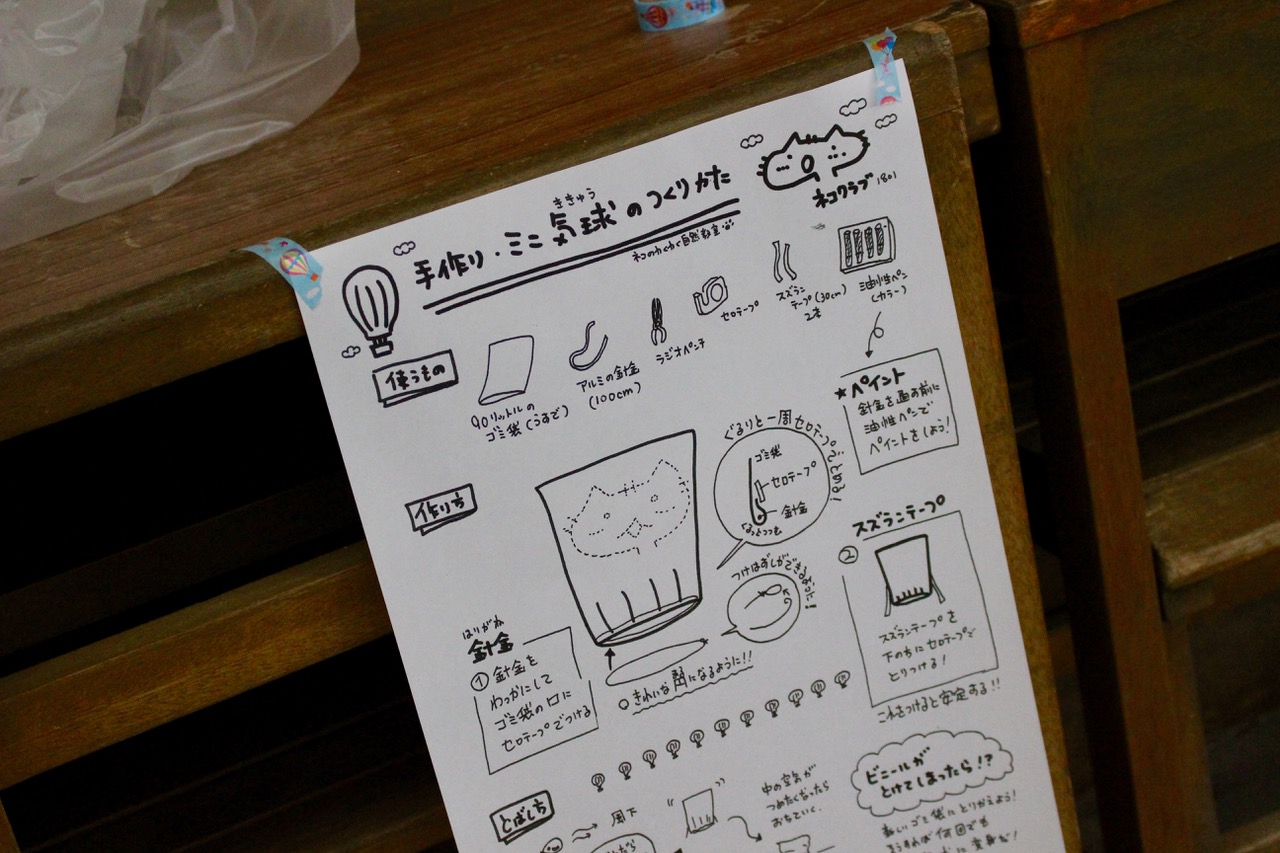 ききゅう
手作り・ミニ気球のつくりかた
ネコのわくわく自然教室
ネコクラブ 1801
使うもの
90リットルの
ゴミ袋(うすで)
アルミの針金
(100cm)
ラジオペンチ
セロテープ
スズラン
テープ(30cm)
2本
油性ペン
(カラー)
★ペイント
針金を通す前に
油性ペンで
ペイントをしよう!
作り方
ぐるりと一周セロテープでとめる!
ゴミ袋
セロテープ
針金
くるっとつつむ
つけはずしができるように!
はりがね
針金
①針金を
わっかにして
ゴミ袋の口に
セロテープでつける
きれいな円になるように!!
スズランテープ
②
スズランテープを
下の方にセロテープで
とりつける!
これをつけると安定する!!
とばし方
風下
中の空気が
つめたくなったら
おちていく。
ビニールが
とけてしまったら!?
新しいゴミ袋にとりかえよう!
そうすれば何回でも